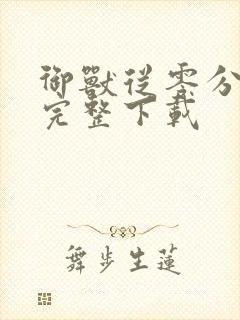 御獸從零分
完整下載
舞步生蓮